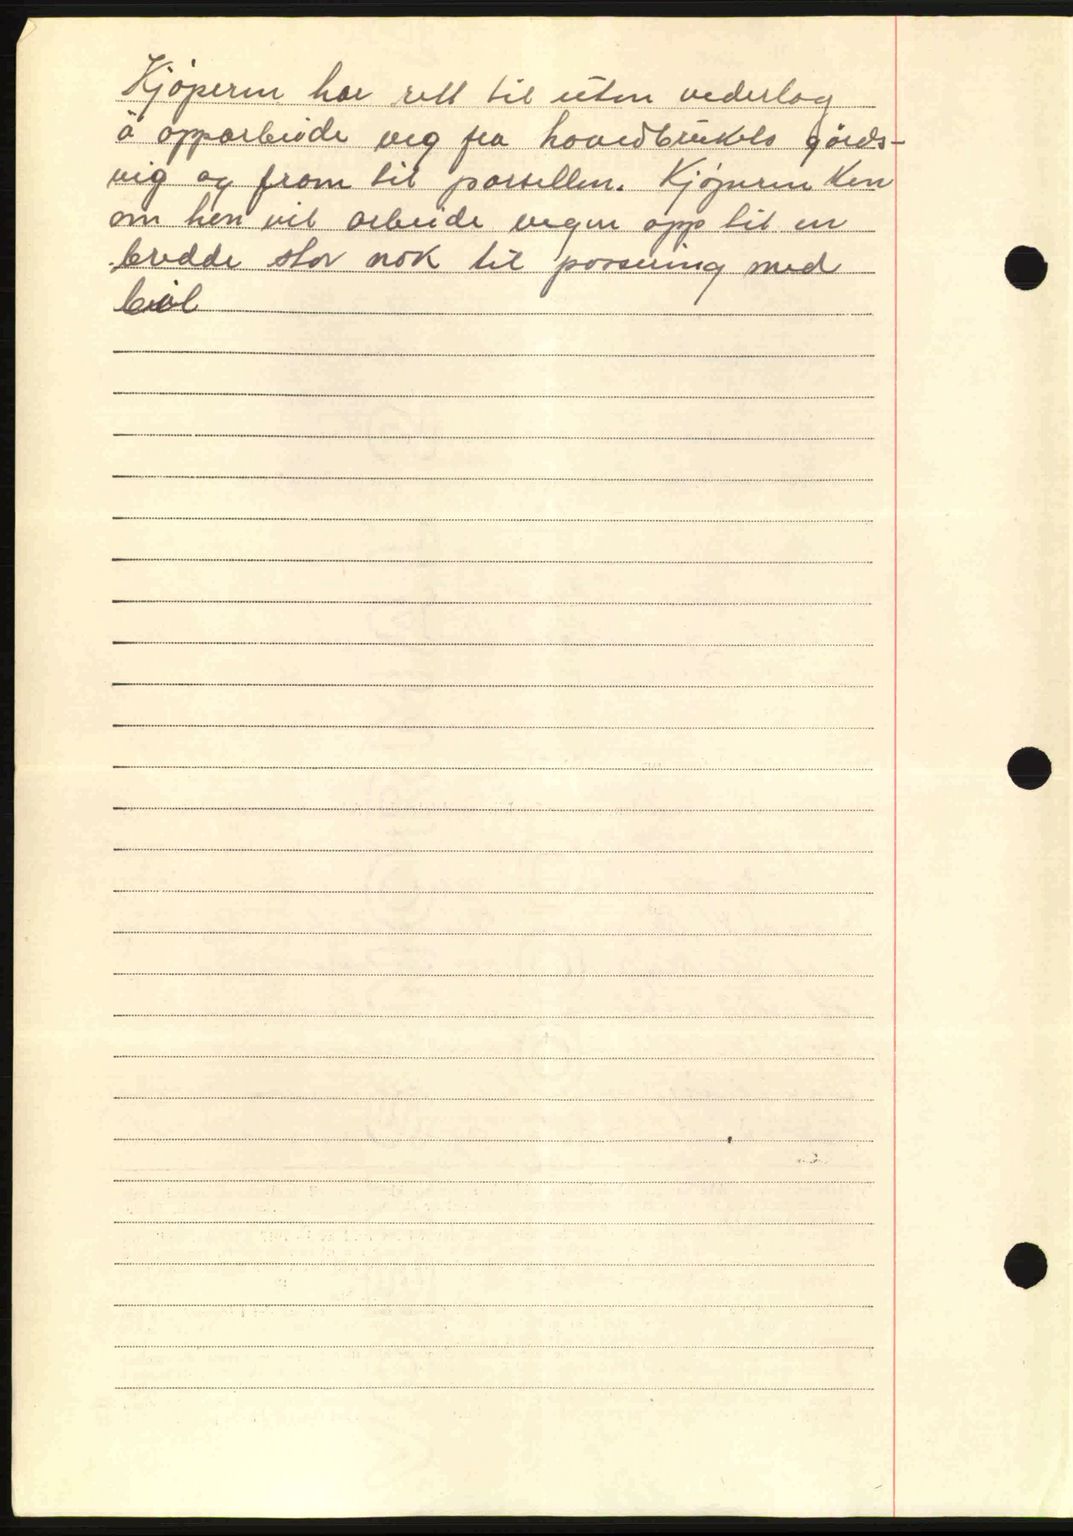 Kjøperen har rett til uten vederlag
å opparbeide veg fra hovedbrukets gårds-
veg og fram til parsellen. Kjøperen kan
om han vil arbeide vegen opp til en
bredde stor nok til passering med
bil